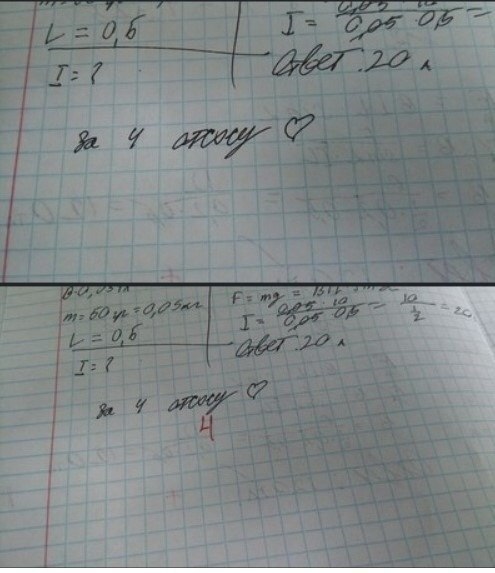 L = 0,5
I = ?
I = 0,05 · 10 / 0,05 · 0,5 =
Ответ: 20 А
за 4 отсосу ♡
m = 50 гр = 0,05 кг
L = 0,5
I = ?
F = mg =
I = 0,05 · 10 / 0,05 · 0,5 = 10 / ½ = 20
Ответ: 20 А
за 4 отсосу ♡
4